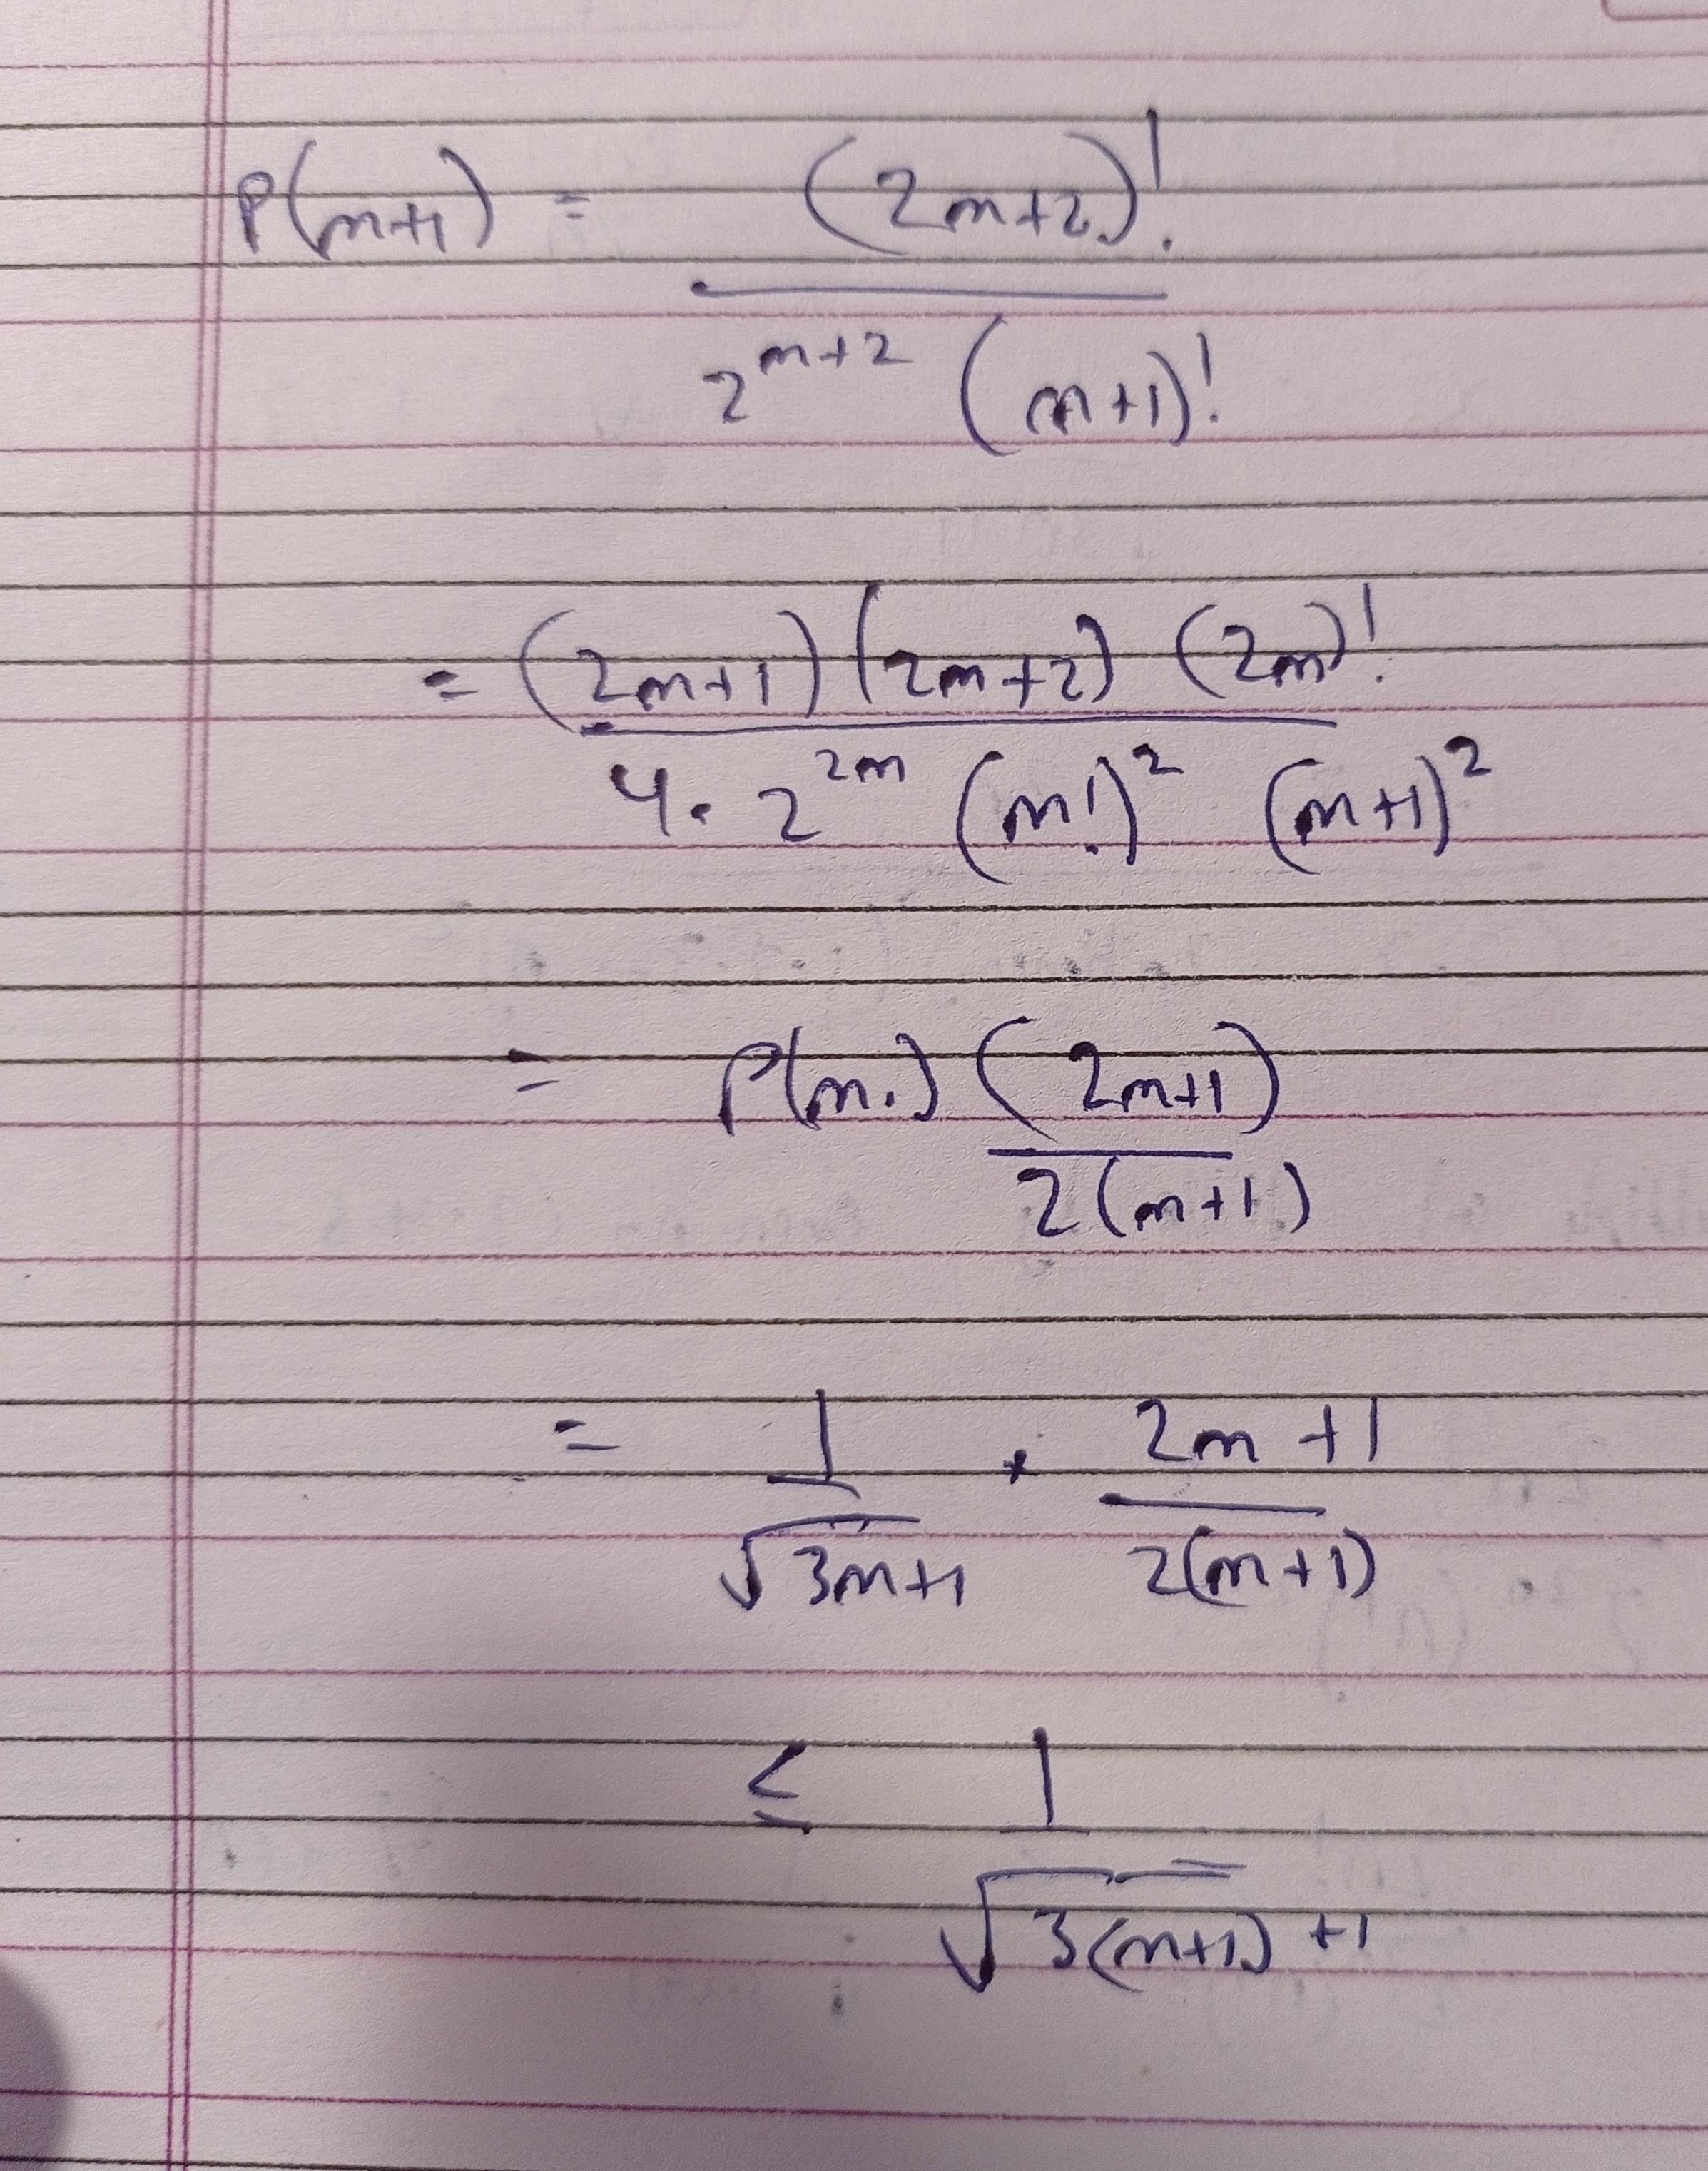 P(m+1) = (2m+2)!
2^{m+2} (m+1)!
= (2m+1) (2m+2) (2m)!
4 · 2^{2m} (m!)^2 (m+1)^2
= P(m) (2m+1)
2(m+1)
= 1 · 2m+1
√3m+1 2(m+1)
≤ 1
√3(m+1)+1